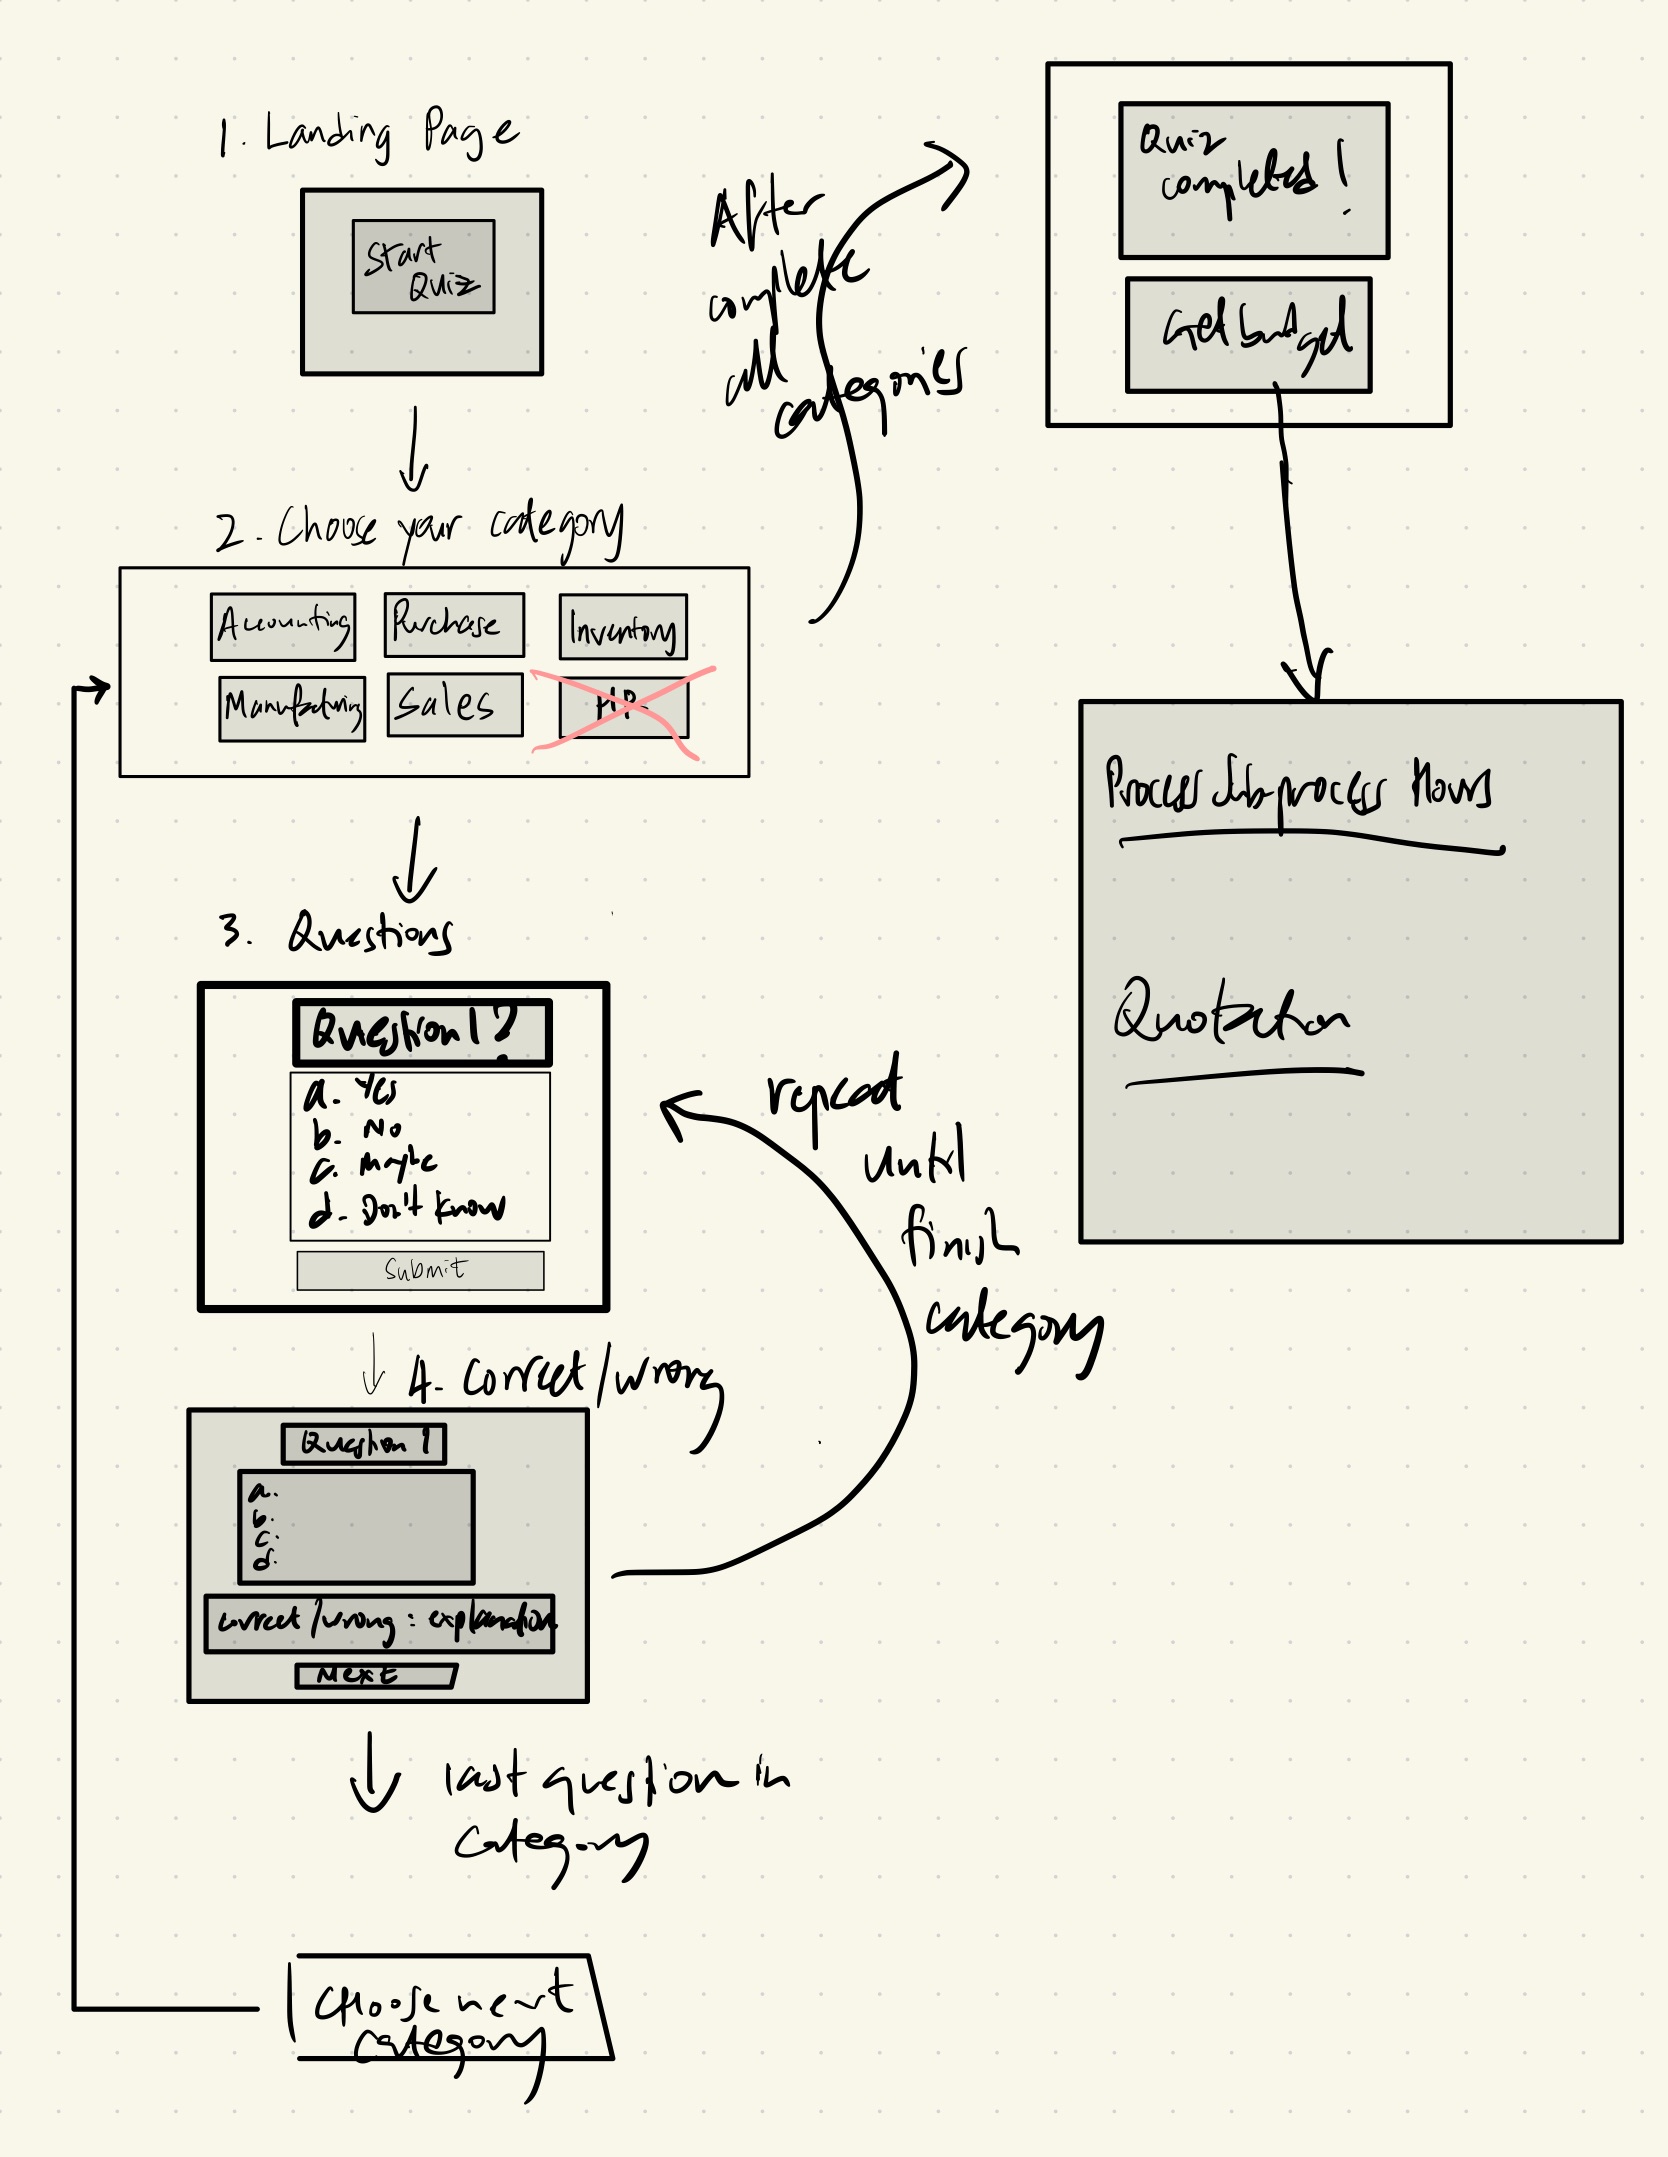 1. Landing Page
Start
Quiz
2. Choose your category
Accounting
Purchase
Inventory
Manufacturing
Sales
HR
3. Questions
Question 1?
a. Yes
b. No
c. Maybe
d. Don't know
Submit
4. Correct/wrong
Question 1
a.
b.
c.
d.
correct/wrong: explanation
Next
last question in
category
Choose next
category
repeat
until
finish
category
After
complete
all
categories
Quiz
completed!
Get budget
Process Sub-process Hours
Quotation